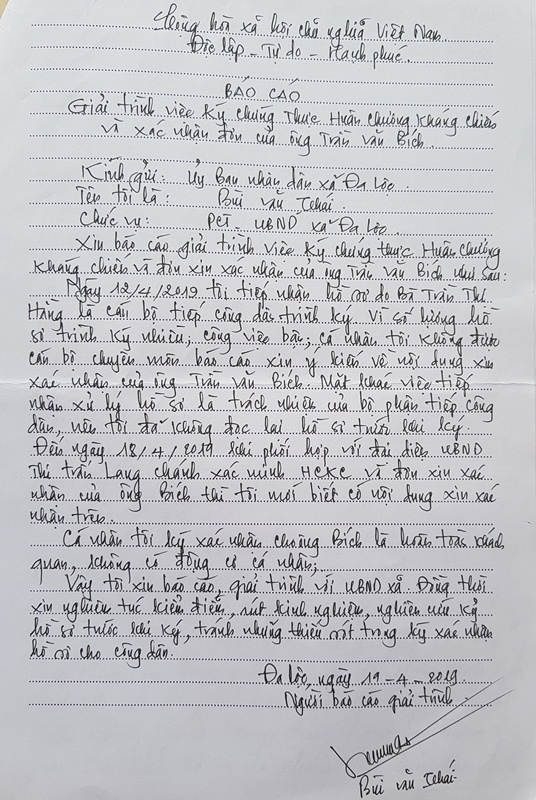 Cộng hòa xã hội chủ nghĩa Việt Nam
Độc lập - Tự do - Hạnh phúc.
BÁO CÁO
Giải trình việc Ký chứng thực Huân chương Kháng chiến
và xác nhận đơn của ông Trần Văn Bích.
Kính gửi: Ủy Ban nhân dân xã Đa Lộc.
Tên tôi là: Bùi Văn Thái.
Chức vụ: PCT UBND xã Đa Lộc.
Xin báo cáo giải trình việc Ký chứng thực Huân chương
Kháng chiến và đơn xin xác nhận của ông Trần Văn Bích như sau:
Ngày 12/4/2019 tôi tiếp nhận hồ sơ do Bà Trần Thị
Hằng là cán bộ tiếp công dân trình ký. Vì số lượng hồ
sơ trình ký nhiều, công việc bận, cá nhân tôi không được
cán bộ chuyên môn báo cáo xin ý kiến về nội dung xin
xác nhận của ông Trần Văn Bích. Mặt khác việc tiếp
nhận xử lý hồ sơ là trách nhiệm của bộ phận tiếp công
dân, nên tôi đã không đọc lại hồ sơ trước khi ký.
Đến ngày 18/4/2019 khi phối hợp với đại diện UBND
Thị trấn Lang Chánh xác minh HCKC và đơn xin xác
nhận của ông Bích thì tôi mới biết có nội dung xin xác
nhận trên.
Cá nhân tôi ký xác nhận cho ông Bích là hoàn toàn khách
quan, không có động cơ cá nhân;
Vậy tôi xin báo cáo, giải trình với UBND xã. Đồng thời
xin nghiêm túc kiểm điểm, rút kinh nghiệm, nghiên cứu kỹ
hồ sơ trước khi ký, tránh những thiếu sót trong ký xác nhận
hồ sơ cho công dân.
Đa Lộc, ngày 19-4-2019
Người báo cáo giải trình
Bùi Văn Thái